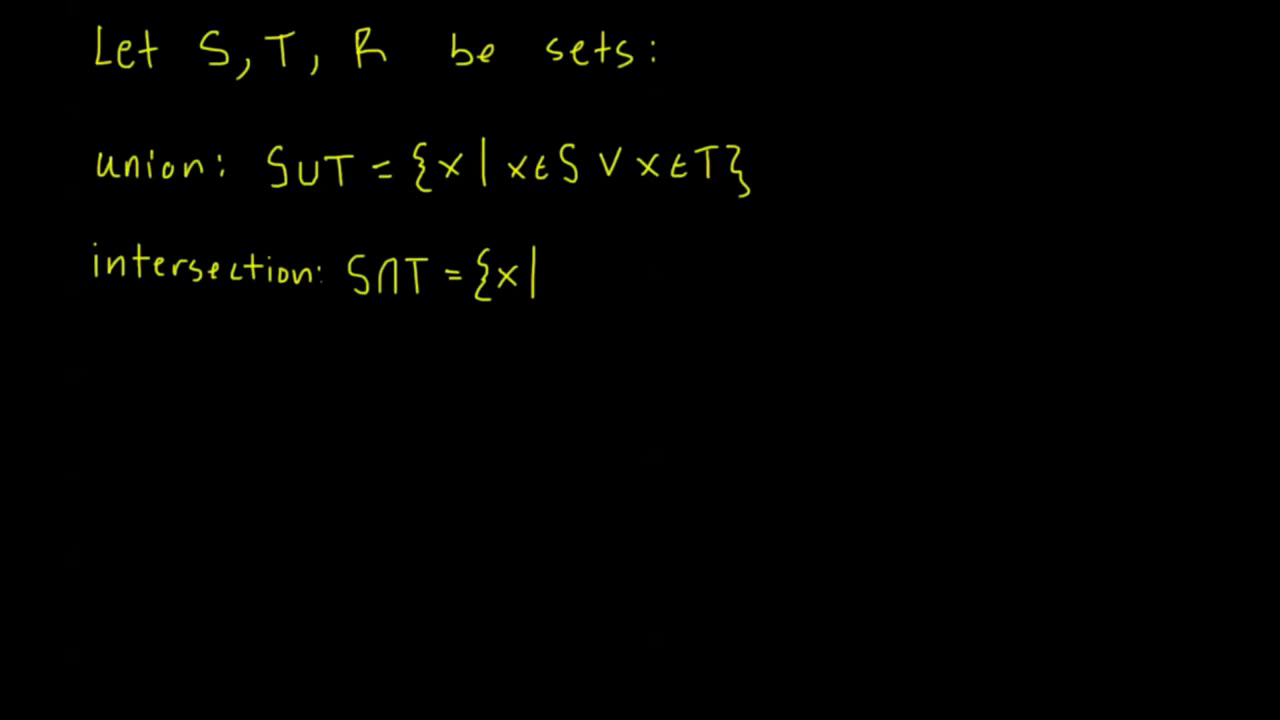 Let S, T, R be sets:
union: S∪T = {x | x∈S ∨ x∈T}
intersection: S∩T = {x |